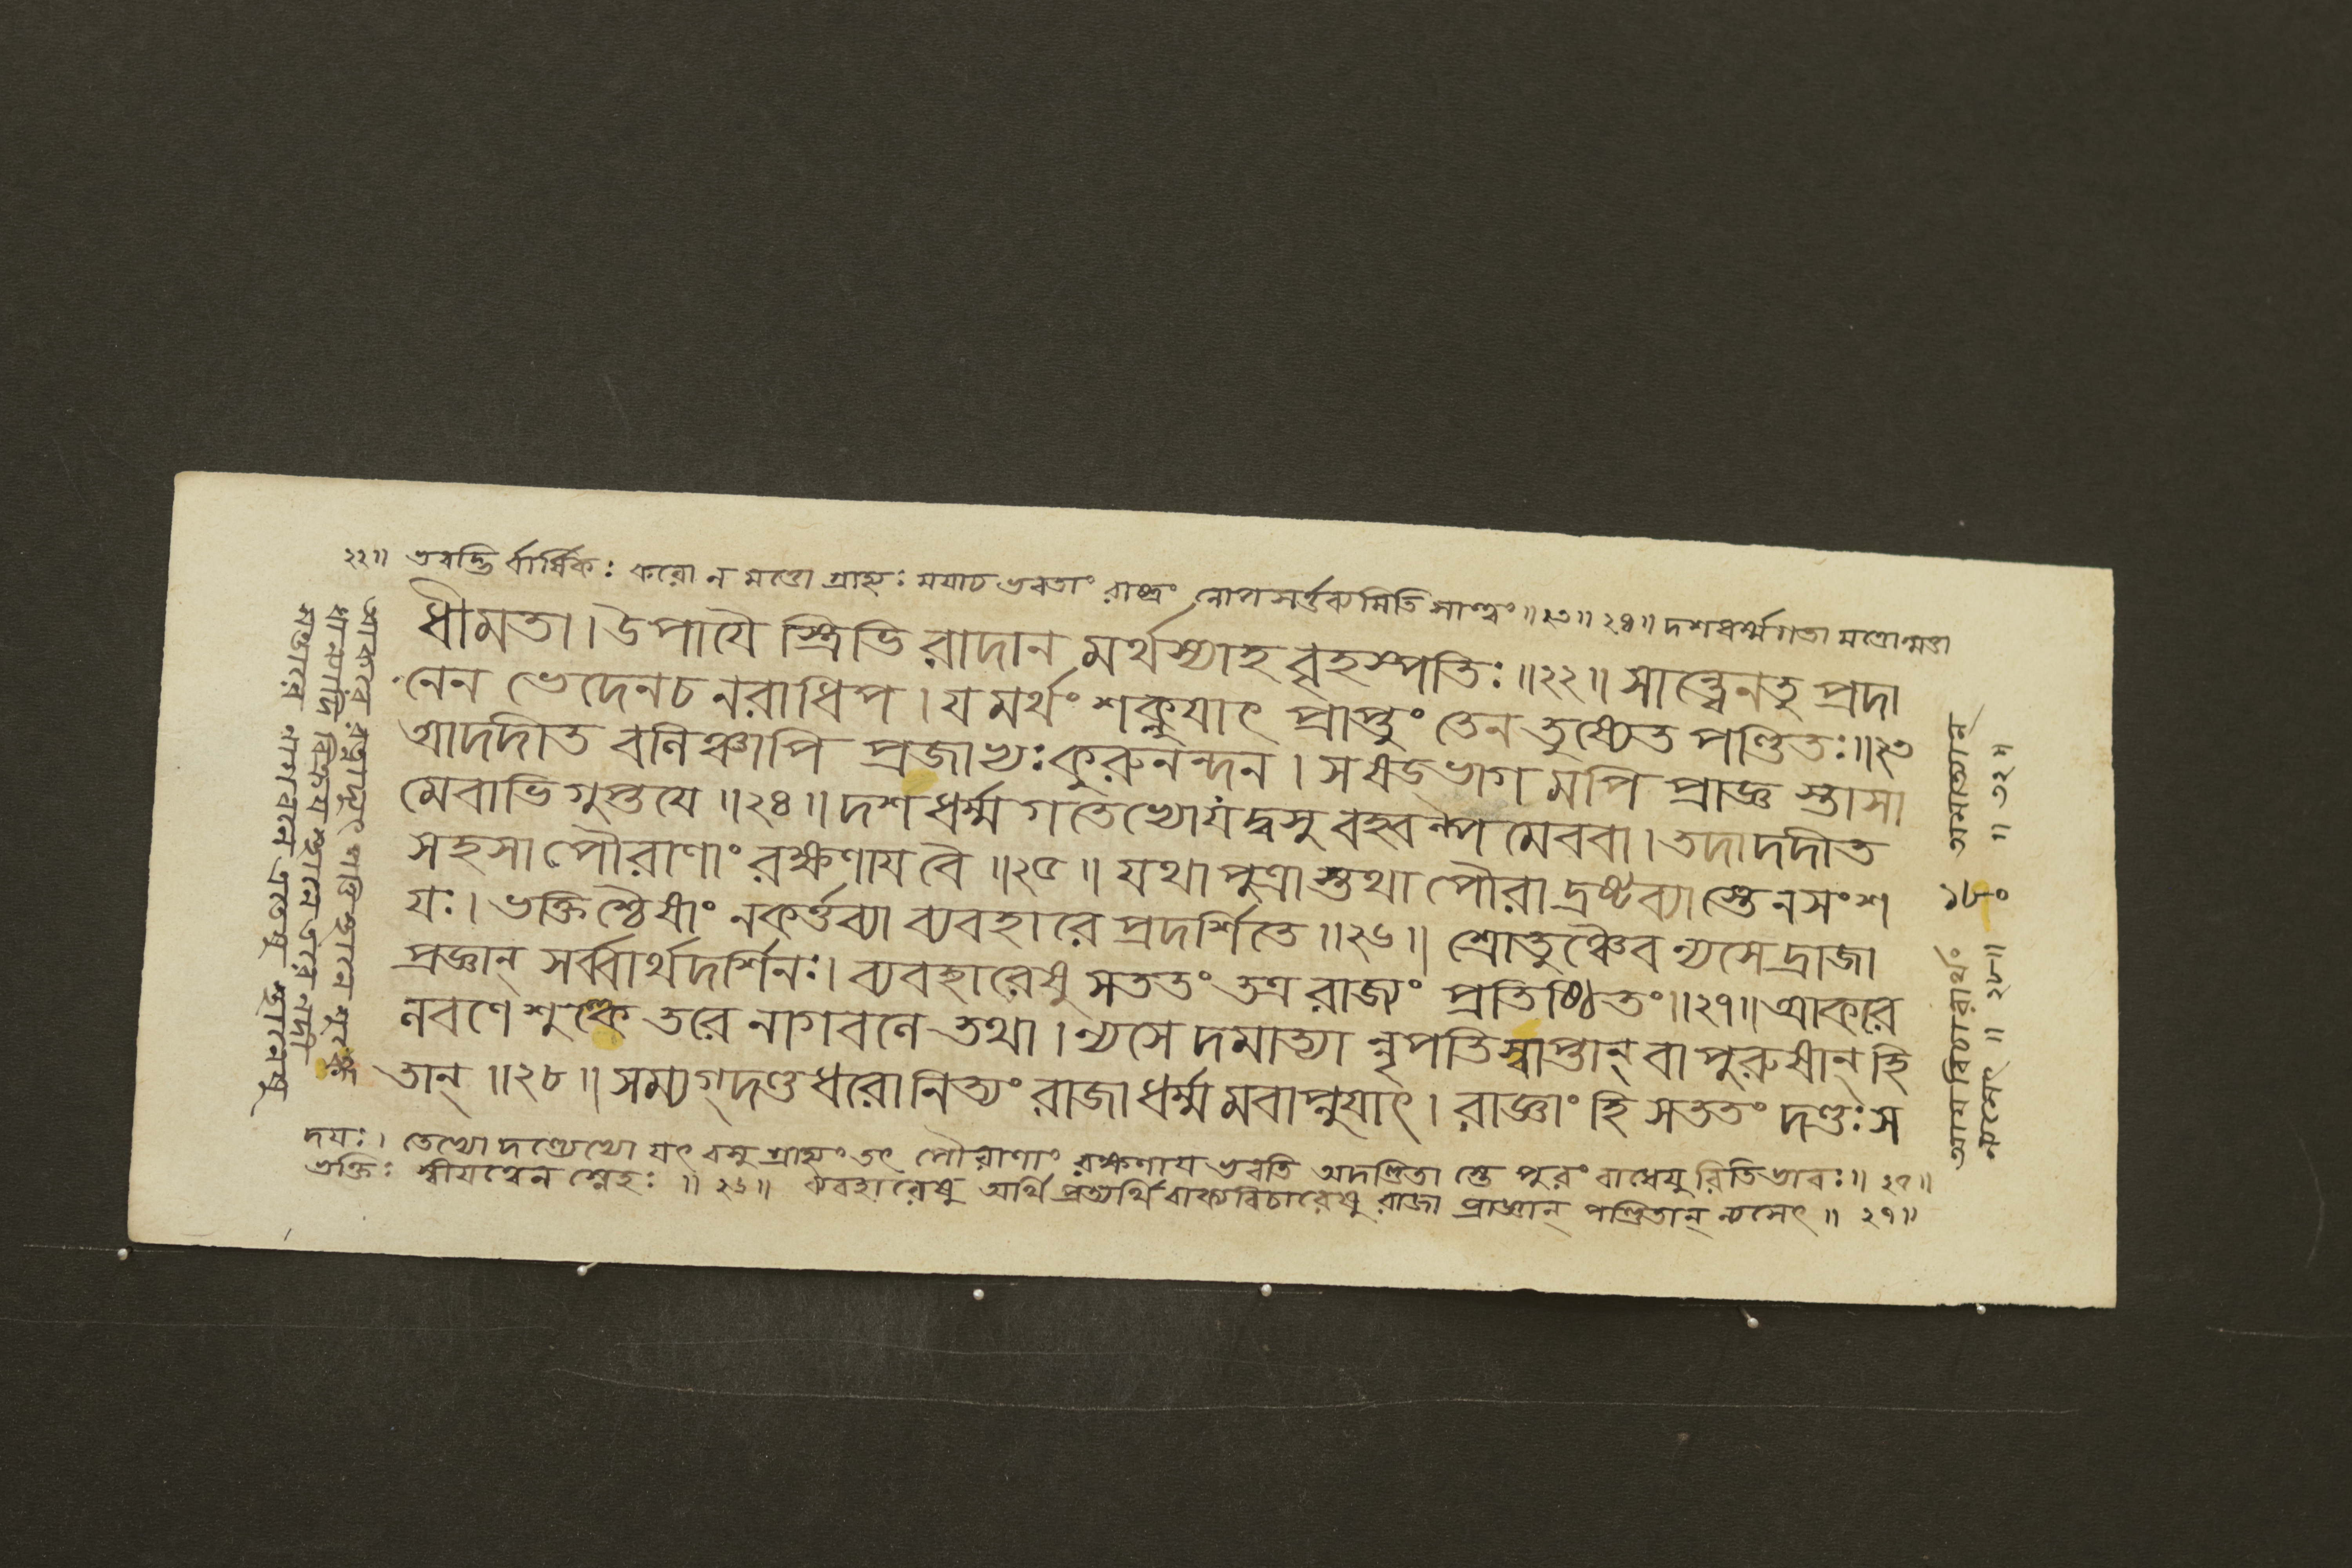 ২২॥ ভবদ্ভি র্বার্ষিকঃ করো ন মত্তো গ্রাহ্যঃ ময়াচ ভবতাং রাষ্ট্রং নোপসর্ত্তব্যমিতি সান্ত্বং॥২৩॥২৪॥ দশধর্ম্মগতা মত্তোন্মত্তা
ধীমতা। উপাযৈ স্ত্রিভি রাদান মর্থস্যাহ বৃহস্পতিঃ॥২২॥ সান্ত্বেনতু প্রদা
নেন ভেদেনচ নরাধিপ। য মর্থং শক্নুযাৎ প্রাপ্তুং তেন তুষ্যেত পণ্ডিতঃ॥২৩
আদদীত বলিঞ্চাপি প্রজাভ্যঃ কুরুনন্দন। সষড্ভাগ মপি প্রাজ্ঞ স্তাসা
মেবাভি গুপ্তযে॥২৪॥ দশ ধর্ম্ম গতেভ্যো যদ্বসু বহ্বল্প মেববা। তদাদদীত
সহসা পৌরাণাং রক্ষণাযবৈ॥২৫॥ যথাপুত্রা স্তথা পৌরা দ্রষ্টব্যা স্তেনসংশ
যঃ। ভক্তিশ্চৈষাং নকর্ত্তব্যা ব্যবহারে প্রদর্শিতে॥২৬॥ শ্রোতুঞ্চৈব ন্যসেদ্রাজা
প্রজ্ঞান্ সর্ব্বার্থদর্শিনঃ। ব্যবহারেষু সততং তত্র রাজ্যং প্রতিষ্ঠিতং॥২৭॥ আকরে
লবণে শুল্কে তরে নাগবলে তথা। ন্যসে দমাত্যা ন্নৃপতিস্বাপ্তান্ বা পুরুষান্ হি
তান্॥২৮॥ সম্যগ্দণ্ডধরো নিত্যং রাজা ধর্ম্ম মবাপ্নুযাৎ। রাজ্ঞাং হি সততং দণ্ডঃ স
দযঃ। তেভ্যো দণ্ড্যেভ্যো যৎ বসু গ্রাহ্যং তৎ পৌরাণাং রক্ষণায ভবতি অদণ্ডিতা স্তে পুরং বাধেযু রিতিভাবঃ॥২৫॥
ভক্তিঃ স্বীযত্বেন স্নেহঃ॥২৬॥ ব্যবহারেষু অর্থি প্রত্যর্থি বাক্যবিচারেষু রাজা প্রাজ্ঞান্ পণ্ডিতান্ ন্যসেৎ॥২৭॥
ধান্যাদি বিক্রয স্থানে তরে নদী
নাগবলে এতেষু স্থানেষু
আযবিচারার্থং ১৮০ অমাত্যান্
ন্যসেৎ॥২৮॥